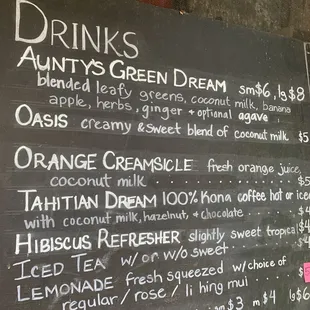 DRINKS
AUNTY'S GREEN DREAM sm$6, lg$8
blended leafy greens, coconut milk, banana
apple, herbs, ginger + optional agave
OASIS creamy & sweet blend of coconut milk $5
ORANGE CREAMSICLE fresh orange juice,
coconut milk . . . . . . . . . . . . $5
TAHITIAN DREAM 100% Kona coffee hot or iced
with coconut milk, hazelnut, & chocolate . . . . $4
HIBISCUS REFRESHER slightly sweet tropical $4
ICED TEA w/ or w/o sweet . . . . . . $4
LEMONADE fresh squeezed w/choice of
regular / rose / li hing mui . . . $
sm $3 m $4 lg $6